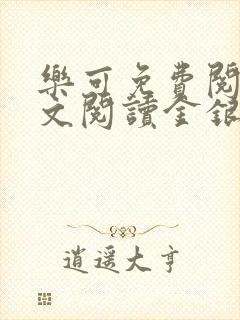 樂可免費閱
文閱讀全銀
逍遥大亨